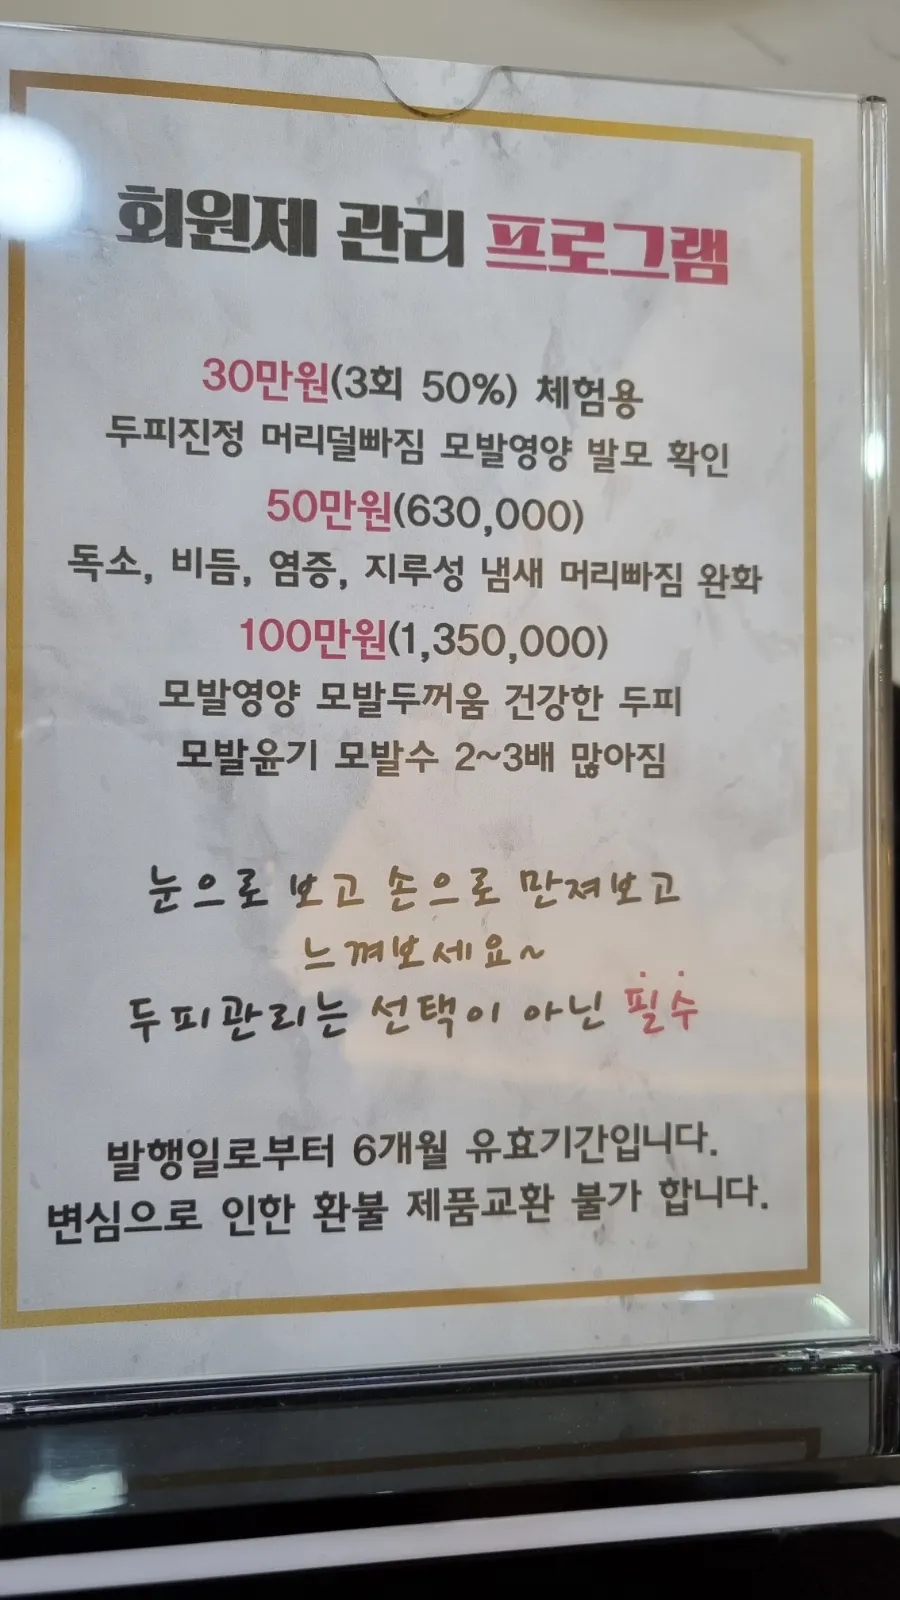 회원제 관리 프로그램
30만원(3회 50%) 체험용
두피진정 머리덜빠짐 모발영양 발모 확인
50만원(630,000)
독소, 비듬, 염증, 지루성 냄새 머리빠짐 완화
100만원(1,350,000)
모발영양 모발두꺼움 건강한 두피
모발윤기 모발수 2~3배 많아짐
눈으로 보고 손으로 만져보고
느껴보세요~
두피관리는 선택이 아닌 필수
발행일로부터 6개월 유효기간입니다.
변심으로 인한 환불 제품교환 불가 합니다.